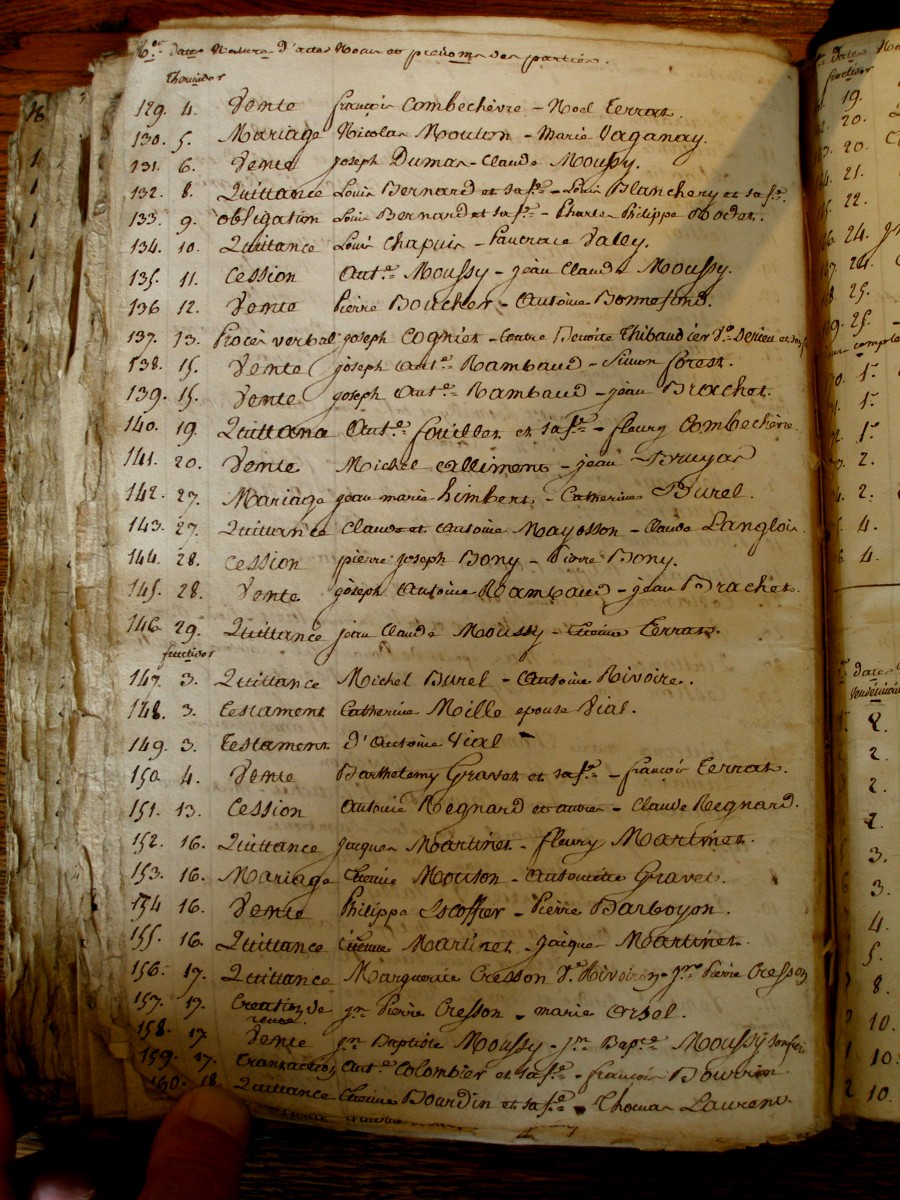 N.os dates Nature d'actes Noms et prénoms des parties.
Thermidor
129. 4. Vente françois Combechèvre - Noel Terras.
130. 5. Mariage Nicolas Mouton - Marie Vaganay.
131. 6. Vente joseph Dumas - Claude Moussy.
132. 8. Quittance Louis Bernard et sa fe. - Louis Blanchery et sa fe.
133. 9. obligation Louis Bernard et sa fe. - Charles Philippe Rodet.
134. 10. Quittance Louis Chapuis - Vally.
135. 11. Cession Ant.e Moussy - jean Claude Moussy.
136 12. Vente Pierre Boucher - Antoine Bonnefond.
137. 13. Procès verbal joseph Cogniet - contre Benoite Thibaudier Ve.
138. 15. Vente joseph Ant.e Rambaud - Simon forest.
139. 15. Vente joseph Ant.e Rambaud - jean Brachet.
140. 19. Quittance Ant.e fouilles et sa fe. - fleury Combechèvre
141. 20. Vente Michel - jean Bruyas
142. 27. Mariage jean marie himbert. - Catherine Burel.
143. 27. Quittance Claude et Antoine Mayosson - Claude Langlois.
144. 28. Cession pierre joseph Bony - Pierre Bony.
145. 28. Vente joseph Antoine Rambaud - jean Brachet.
146. 29. Quittance jean Claude Moussy - Etienne Terras.
fructidor
147. 3. Quittance Michel Burel - Antoine Rivoire.
148. 3. Testament Catherine Mille epouse Vial.
149. 3. Testament d'Antoine Vial
150. 4. Vente Barthelemy Gravet et sa fe. - françois Terras.
151. 13. Cession Antoine Regnard et autres - Claude Regnard.
152. 16. Quittance jacques Martinet - fleury Martinet.
153. 16. Mariage Etienne Mouton - Antoinette Gravet.
154 16. Vente Philippe Escoffier - Pierre Barboyon.
155. 16. Quittance Etienne Martinet - jacques Martinet.
156. 17. Quittance Marguerite Cresson Ve. - Pierre Cresson
157. 17. Creation de rente. jn. Pierre Cresson - marie orsel.
158. 17 Vente jn. Baptiste Moussy - jn. Bapte. Moussy son
159. 17. transaction Ant.e Colombier et sa fe. - françois Bourrin
160. 18. Quittance Etienne Bourdin et sa fe. - Thomas Laurent.